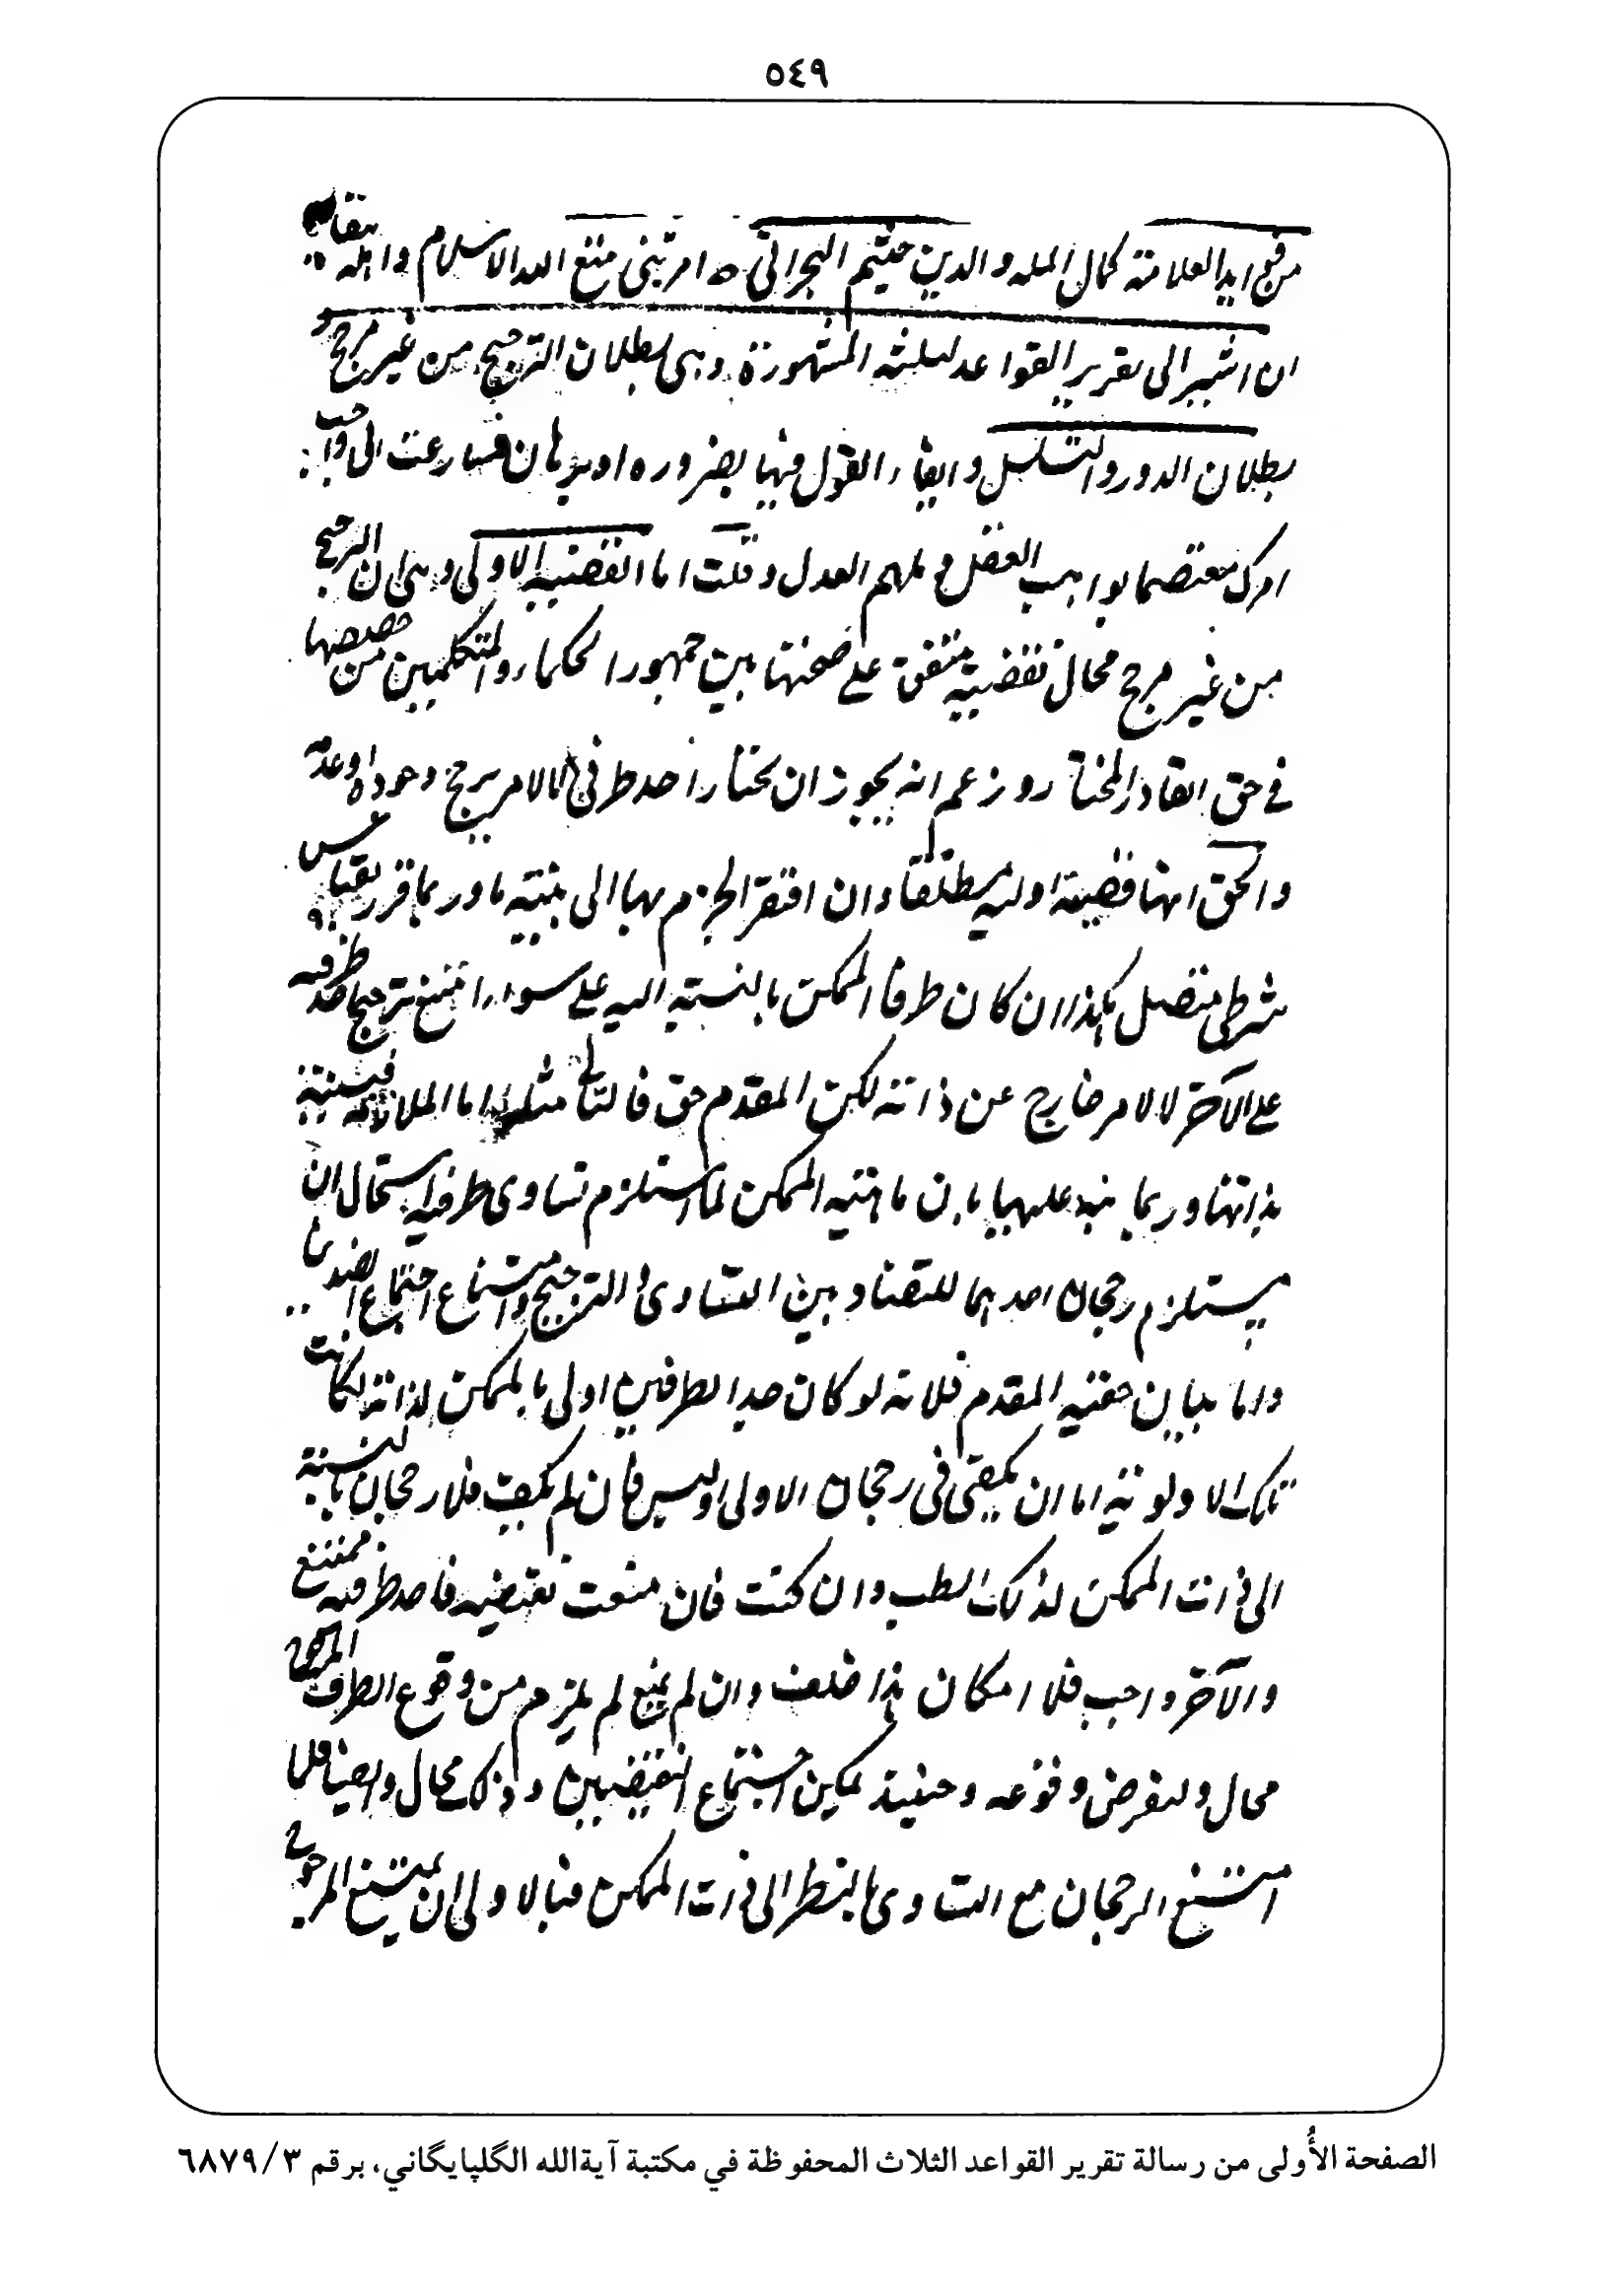 ٥٤٩
العلامة كمال المله والدين ميثم البحراني امرتني متع الله الاسلام واهله ببقائه
ان اشير الى تقرير القواعد الثلثه المشهورة وهى بطلان الترجيح من غير مرجح و
بطلان الدور والتسلسل وايفاء القول فيها بضروره او برهان فسارعت الى واجب
امرك معتصما بواهب العقل وملهم العدل وقلت اما القضية الاولى وهى ان الترجيح
من غير مرجح محال فقضية متفق على صحتها بين جمهور الحكماء والمتكلمين من خصصها
في حق القادر المختار وزعم انه يجوز ان يختار احد طرفي لا لامر يرجح وجوده او عدمه
والحق انها قضية اولية مطلقا وان افتقر الجزم بها الى تنبيه ما وربما قرر بقياس
شرطي متصل هكذا ان كان طرفا الممكن بالنسبة اليه على سواء امتنع ترجيح احد طرفيه
على الآخر لا لامر خارج عن ذاته لكن المقدم حق فالتالي مثله اما الملازمة فبينة
بذاتها وربما ينبه عليها بان ماهية الممكن لما استلزم تساوى طرفيه استحال ان
يستلزم رجحان احدهما للتضاد بين التساوى و الترجيح وامتناع اجتماع الضدين
واما بيان حقية المقدم فلانه لو كان احد الطرفين اولى بالممكن لذاته لكانت
تلك الاولوية اما ان يكفى في رجحان الاولى او ليس فان لم يكف فلا رجحان بالنسبة
الى ذات الممكن لذلك الطرف وان كفت فان منعت نقيضه فاحد طرفيه ممتنع
والآخر واجب فلا امكان هذا خلف وان لم يمنع لم يلزم من وقوع الطرف المرجوح
محال ولنفرض وقوعه وحينئذ يمكن اجتماع النقيضين وذلك محال وايضا فلما
امتنع الرجحان مع التساوى بالنظر الى ذات الممكن فبالاولى ان يمتنع المرجوح
الصفحة الأُولى من رسالة تقرير القواعد الثلاث المحفوظة في مكتبة آية‌الله الگلپايگاني، برقم ٦٨٧٩/٣